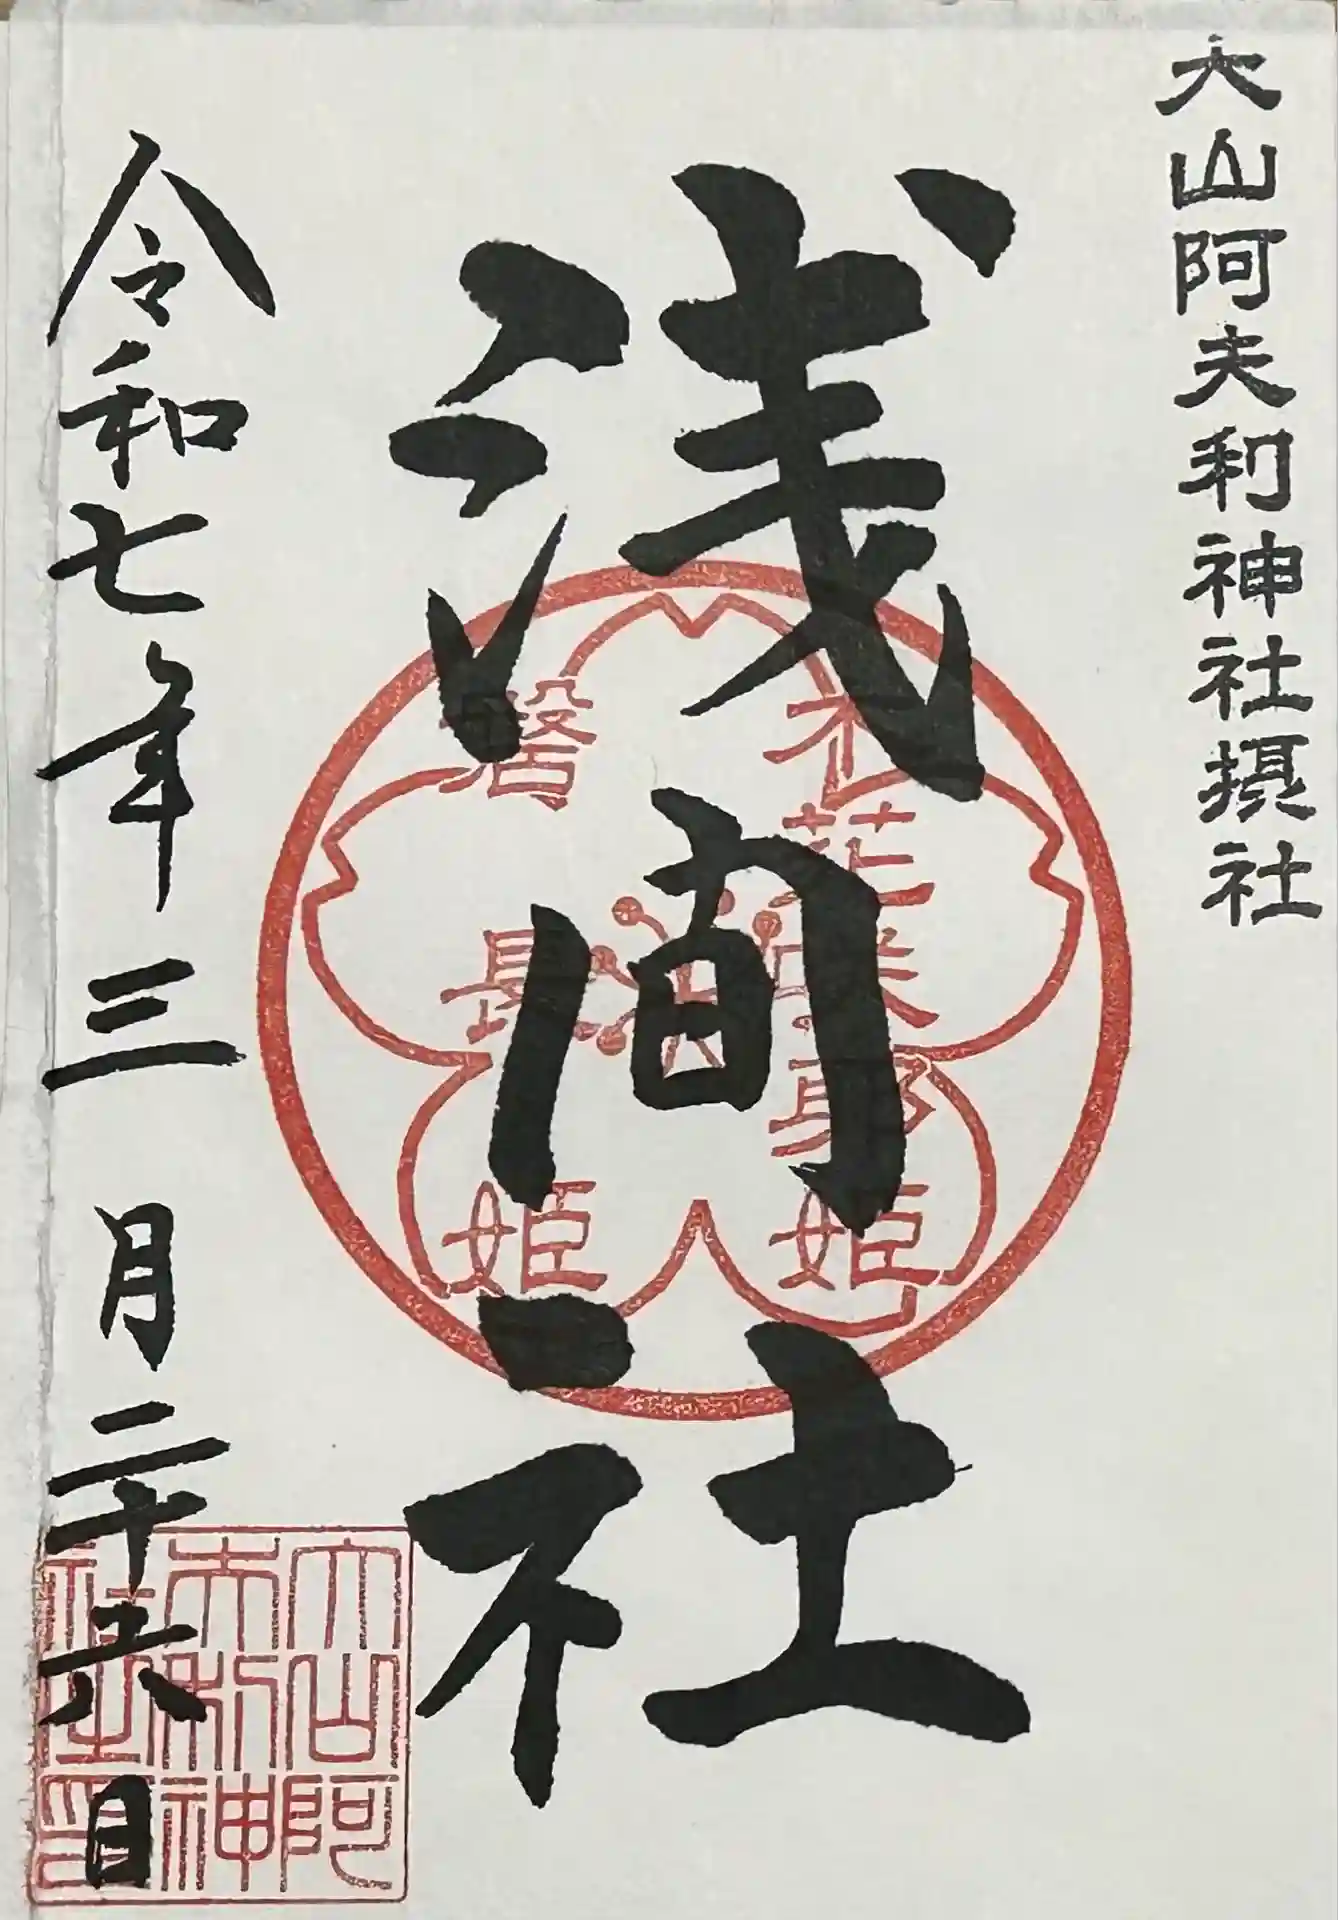 大山阿夫利神社摂社
浅间社
木花咲耶姫
磐長姫
令和七年三月二十六日
大山阿
夫利神
社之印